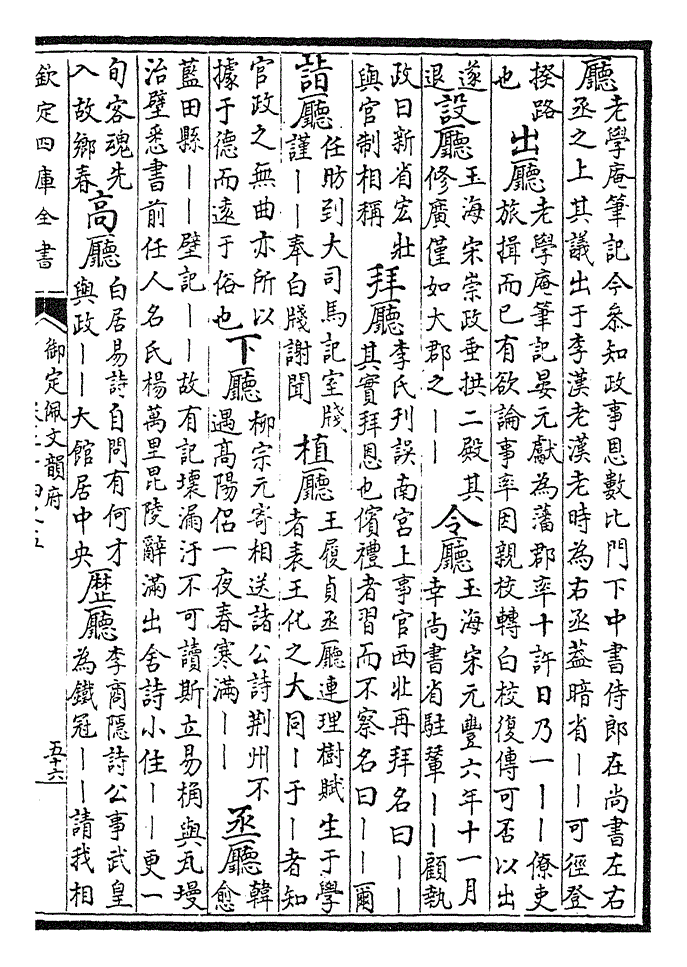 廳
老學庵筆記今叅知政事恩數比門下中書侍郎在尚書左右
丞之上其議出于李漢老漢老時為右丞葢暗省丨丨可徑登
揆路
也
出廳
老學庵筆記晏元獻為藩郡率十許日乃一丨丨僚吏
旅揖而已有欲論事率因親校轉白校復傳可否以出
遂
退
設廳
玉海宋崇政垂拱二殿其
修廣僅如大郡之丨丨
令廳
玉海宋元豐六年十一月
幸尚書省駐輦丨丨顧執
政日新省宏壯
與官制相稱
拜廳
李氏刋誤南宫上事官西北再拜名曰丨丨
其實拜恩也儐禮者習而不察名曰丨丨爾
詣廳
任昉到大司馬記室牋
謹丨丨奉白牋謝聞
植廳
王履貞丞廳連理樹賦生于學
者表王化之大同丨于丨者知
官政之無曲亦所以
據于德而遠于俗也
下廳
柳宗元寄相送諸公詩荆州不
遇高陽侶一夜春寒滿丨丨
丞廳
韓
愈
藍田縣丨丨壁記丨丨故有記壞漏汙不可讀斯立易桷與瓦墁
治壁悉書前任人名氏楊萬里毘陵辭滿出舍詩小住丨丨更一
旬客魂先
入故鄉春
高廳
白居易詩自問有何才
與政丨丨大館居中央
歴廳
李商隱詩公事武皇
為鐵冠丨丨請我相
欽定四庫全書
御定佩文韻府
五十六